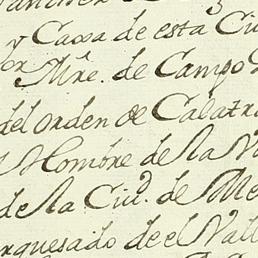 y Caxa de esta Ciu
or Mre. de Campo
del orden de Calatra
Hombre de la Na
de la Ciud. de Me
rquesado de el Vall